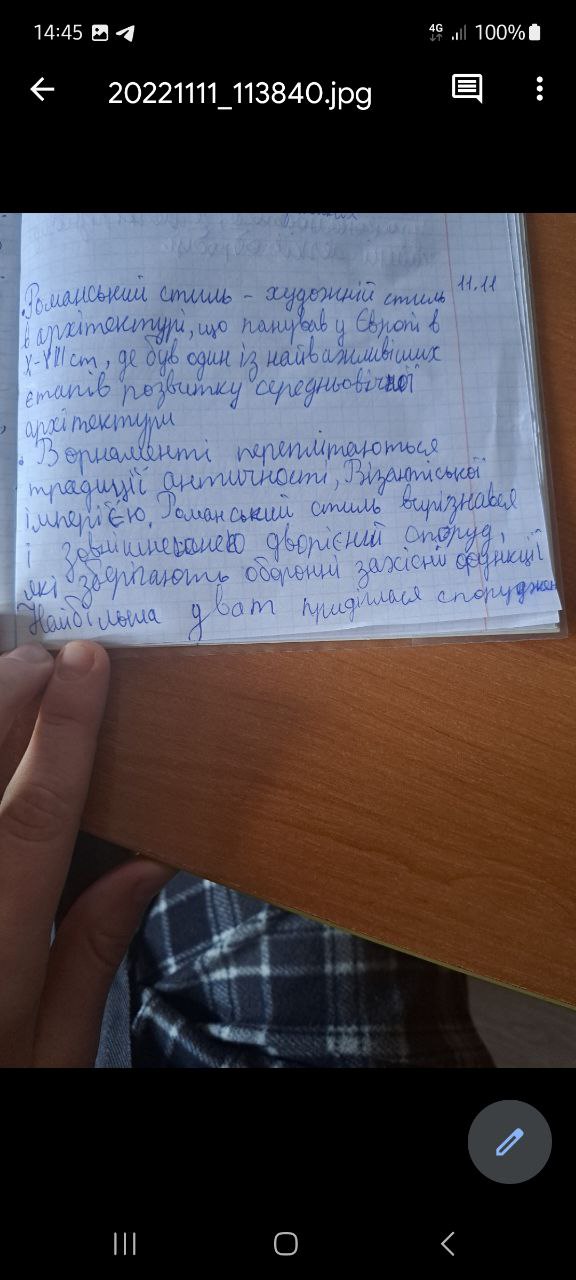 14:45
4G
100%
20221111_113840.jpg
11.11
.Романський стиль - художній стиль
в архітектурі, що панував у Європі в
X-XIII ст, де був один із найважливіших
етапів розвитку середньовічної
архітектури
. В орнаменті переплітаються
традиції античності, Візантіської
імперією. Романський стиль вирізнався
і дворієний споруд,
які зберігають оборонні захісні функції
Найбільша уват приділася споруджен